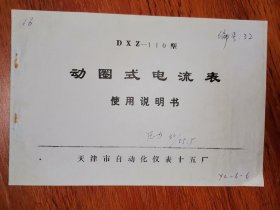 编号:32
DXZ—110型
动圈式电流表
使用说明书
天津市自动化仪表十五厂
YZ-6-6